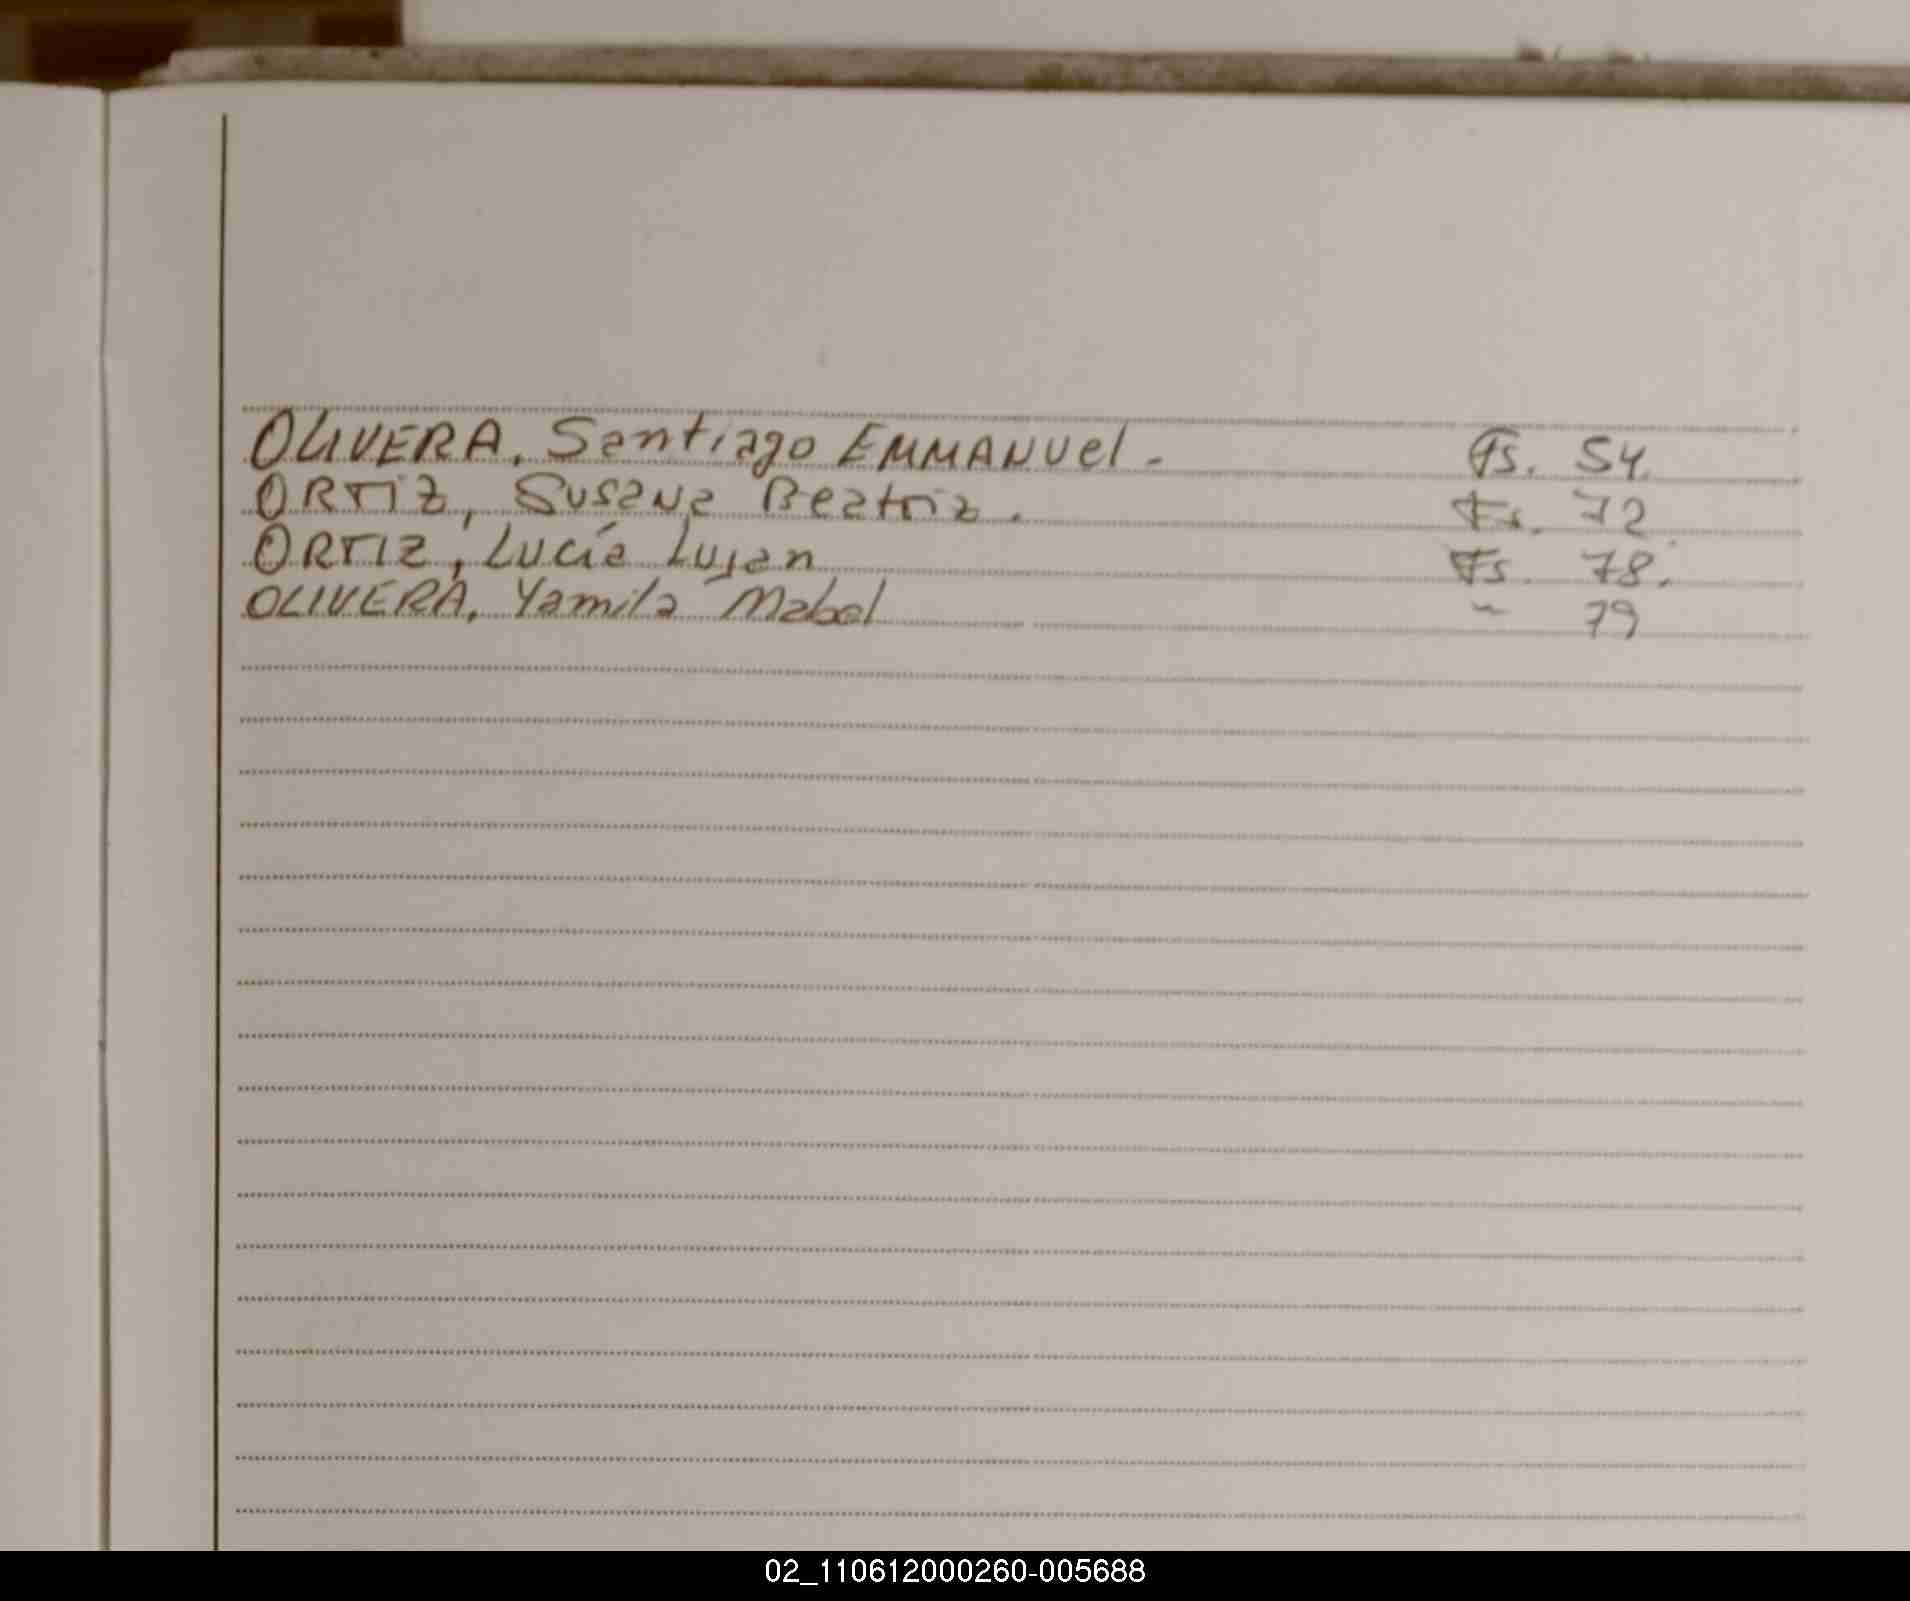 OLIVERA, Santiago EMMANUel - Fs. 54.
ORTIZ, Susana Beatriz. Fs. 72
ORTIZ, Lucía Lujan Fs. 78.
OLIVERA, Yamila Mabel " 79
02_110612000260-005688